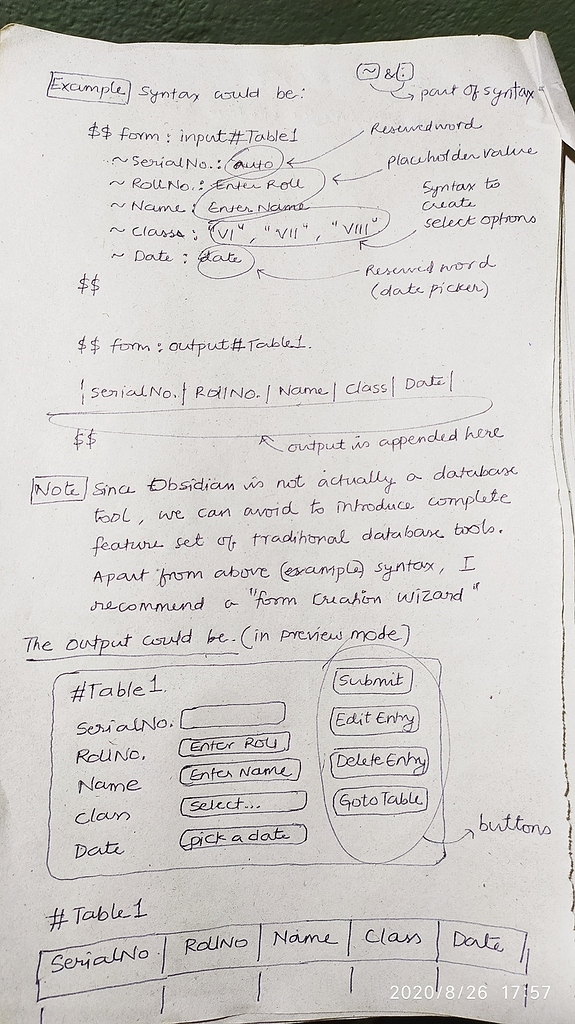 Example Syntax would be:
~ & :
part of syntax
$$ form : input#Table1
Reservedword
~ SerialNo. : auto
placeholder value
~ RollNo. : Enter Roll
~ Name : Enter Name
Syntax to
create
select options
~ Class : "VI", "VII", "VIII"
~ Date : date
Reserved word
(date picker)
$$
$$ form : output#Table1.
| SerialNo. | RollNo. | Name | Class | Date |
$$
output is appended here
Note Since Obsidian is not actually a database
tool, we can avoid to introduce complete
feature set of traditional database tools.
Apart from above (example) syntax, I
recommend a "form creation wizard"
The output could be. (in preview mode)
#Table1.
Submit
SerialNo.
Edit Entry
RollNo. Enter Roll
Delete Entry
Name Enter Name
Class Select...
Goto Table
Date pick a date
buttons
# Table1
SerialNo RollNo Name Class Date
2020/8/26 17:57